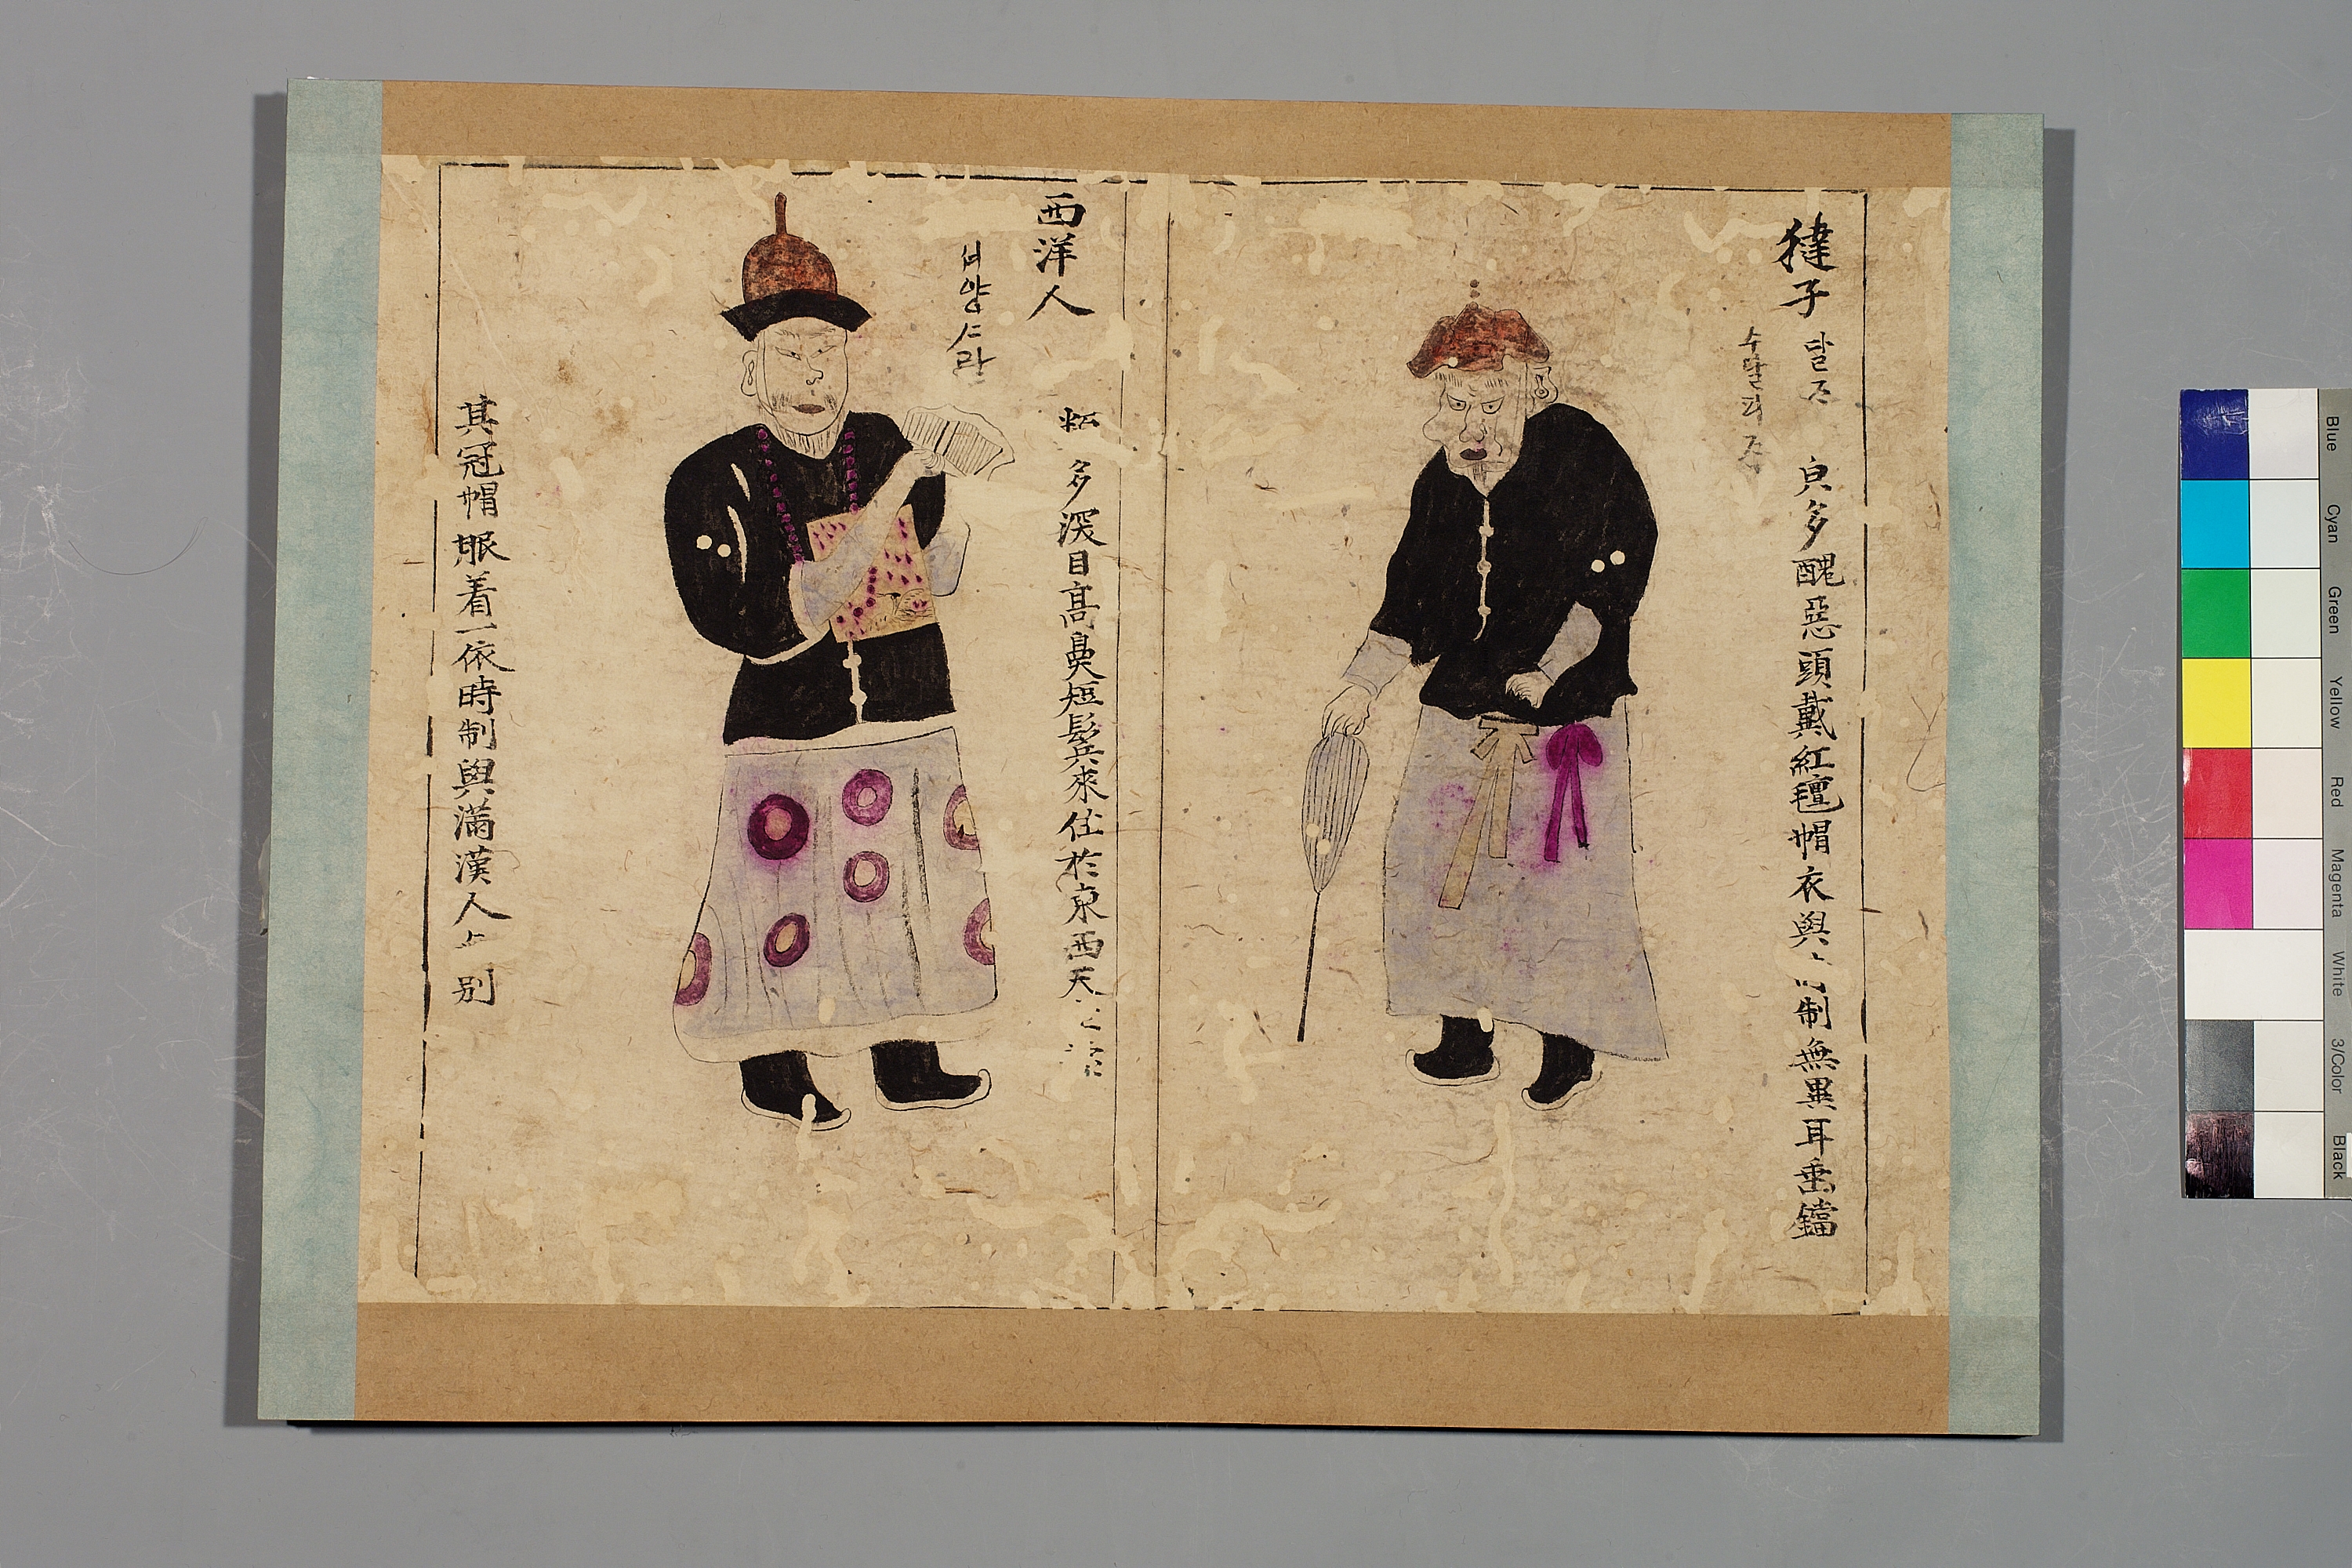 㺚子 달ᄌᆞ
수달피ᄌᆞ
只多醜惡頭戴紅氊帽衣與 制無異耳垂鐺
西洋人
셔양ᄉᆞ람
多深目高鼻短髮 來住於東西天
其冠帽服着一依時制與滿漢人 別
Blue
Cyan
Green
Yellow
Red
Magenta
White
3/Color
Black